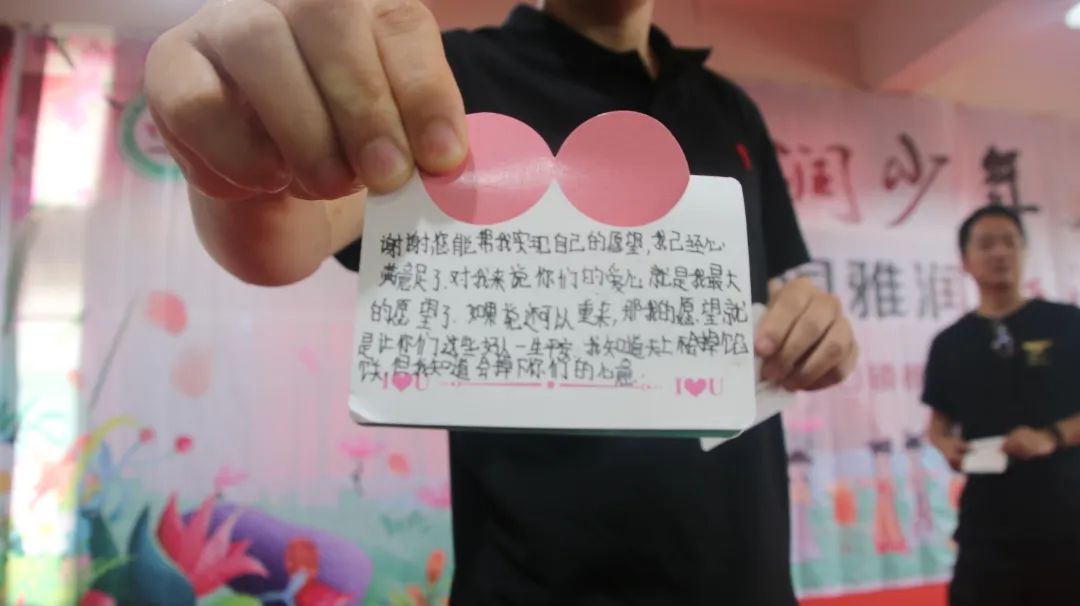 润少年
雅润
谢谢您能帮我实现自己的愿望,我已经心
满意足了.对我来说你们的爱心就是我最大
的愿望了.如果说还可以重来,那我的愿望就
是让你们这些好人一生平安.我知道天上会掉馅
饼,但我知道会掉下你们的心意.
I❤U
I❤U